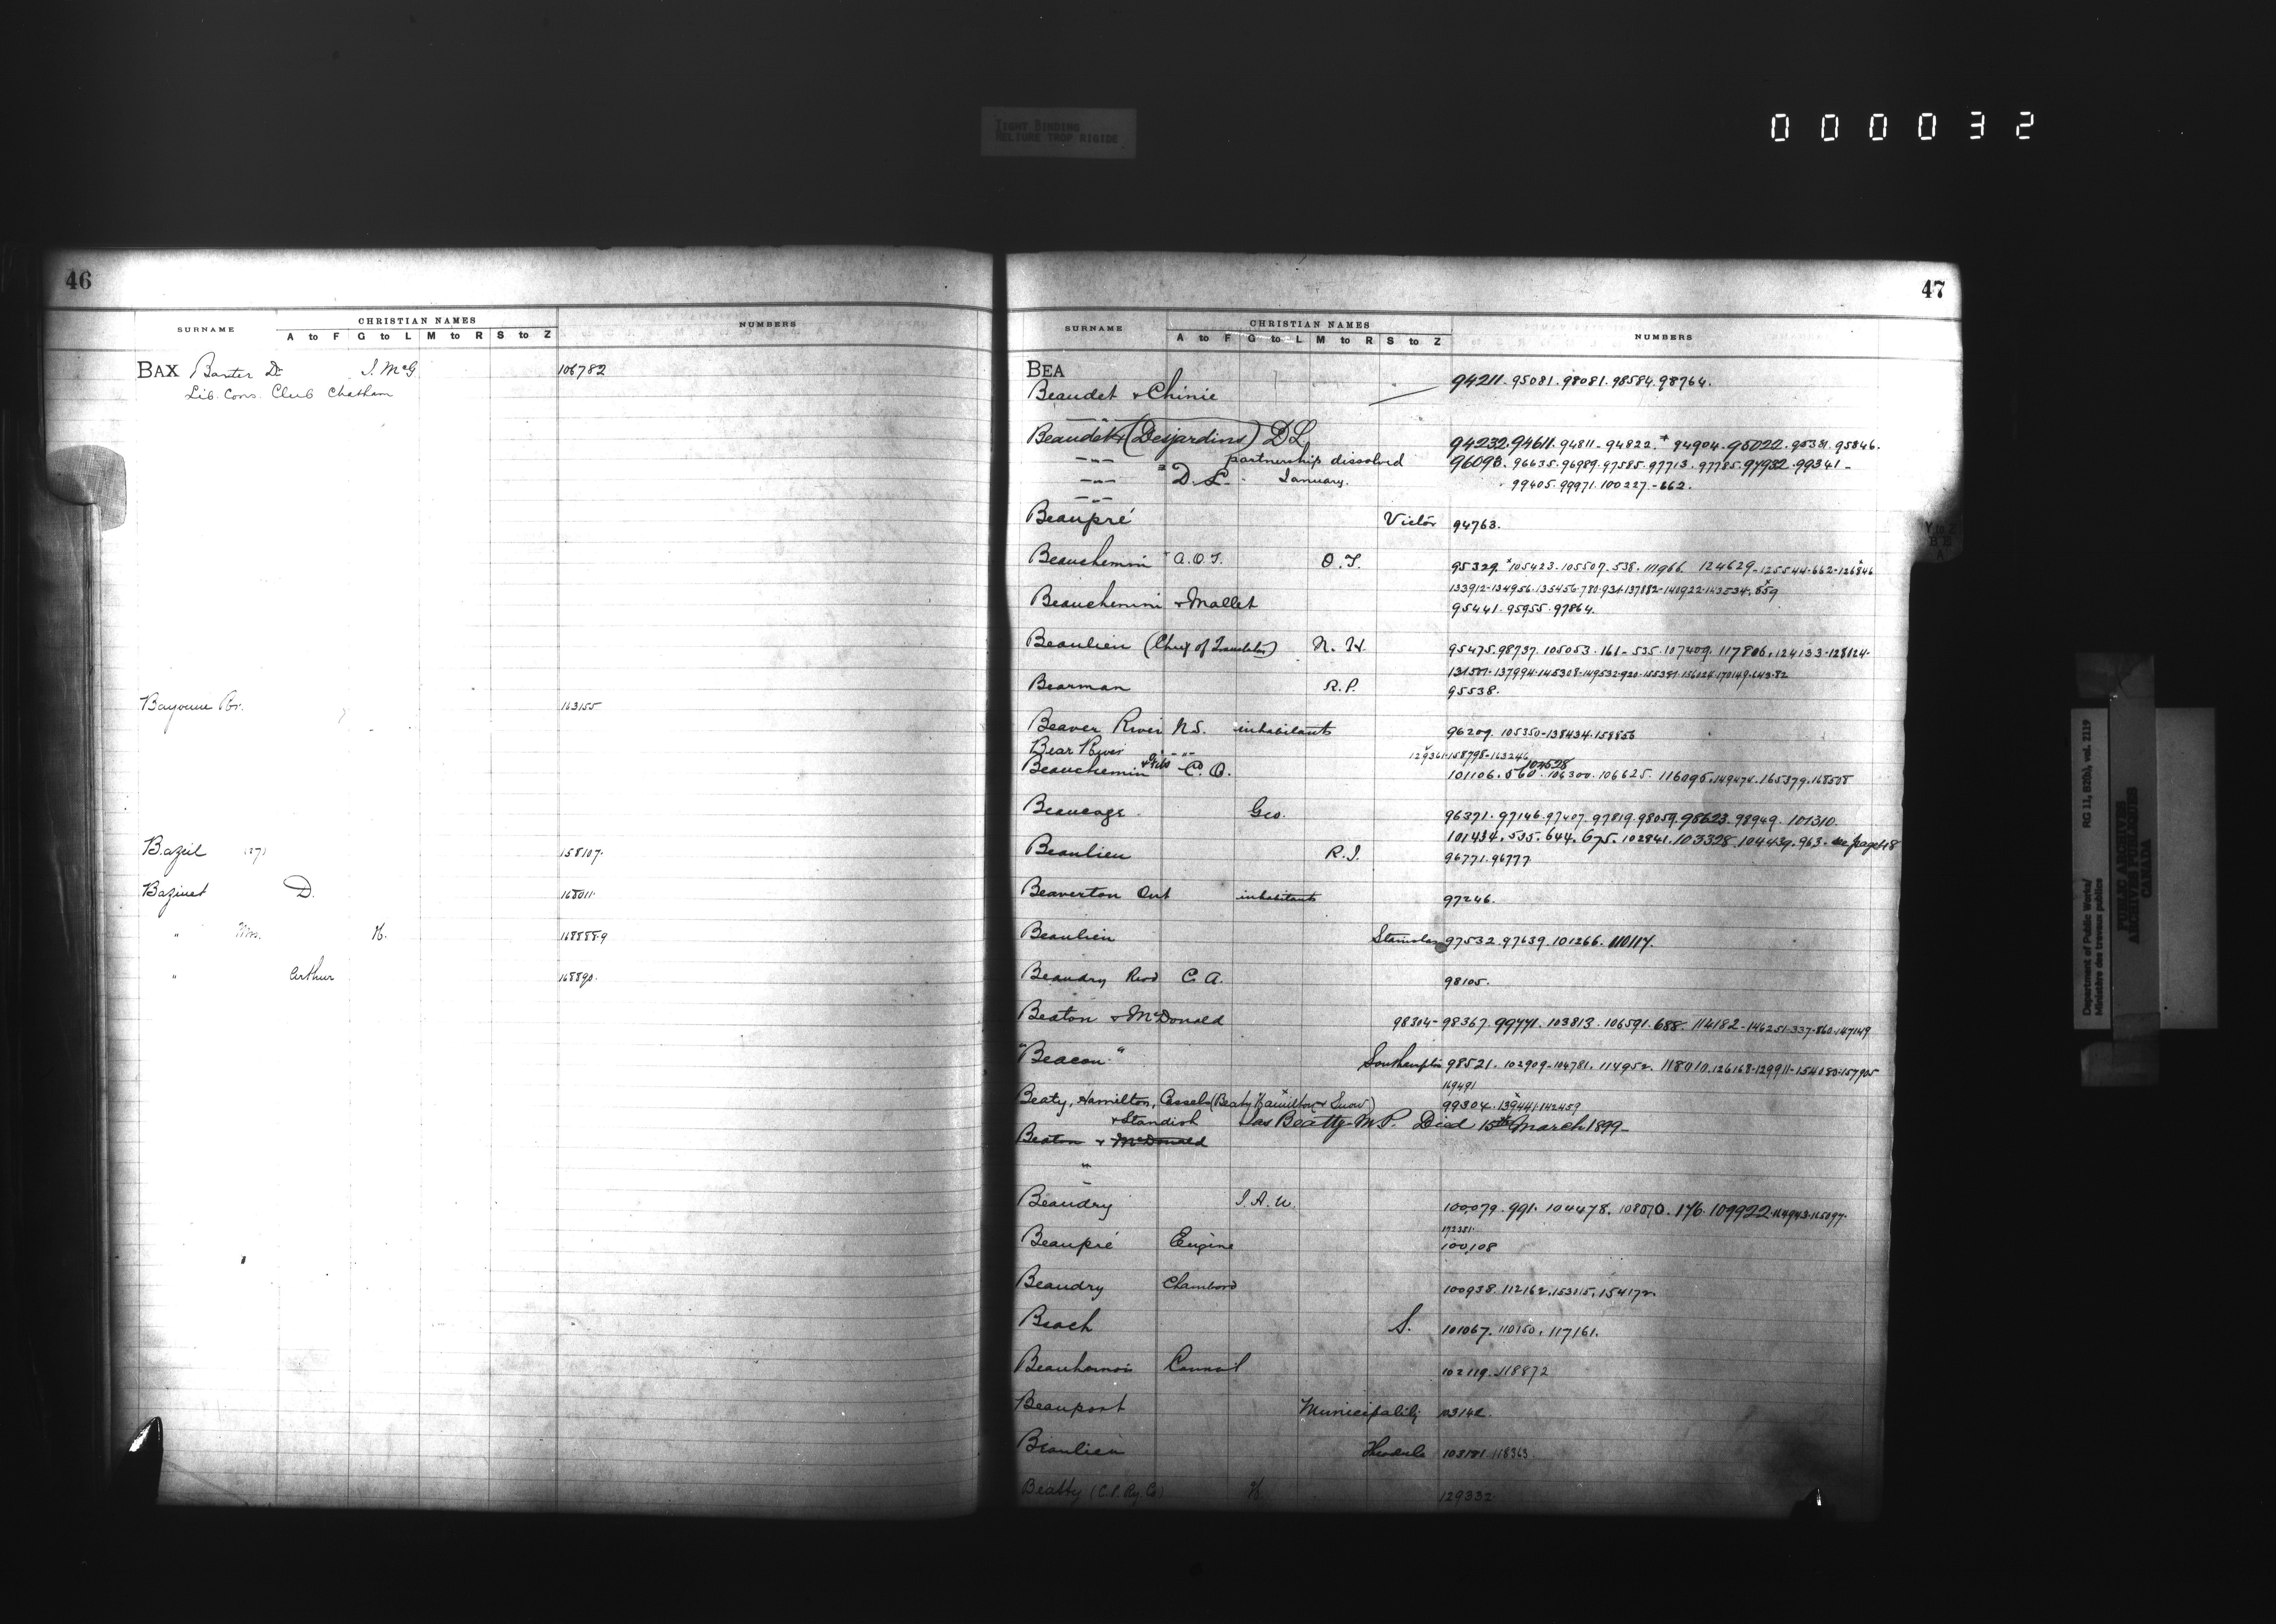 TIGHT BINDING
RELIURE TROP RIGIDE
000032
46
SURNAME
CHRISTIAN NAMES
A to F G to L M to R S to Z
NUMBERS
BAX Baxter Dr J. McG 106782
Lib. Cons. Club Chatham
Bayonne Br. 163155
Bazeil 158107
Bazinet D. 168011
" H.
" Arthur 168890
47
SURNAME
CHRISTIAN NAMES
A to F G to L M to R S to Z
NUMBERS
BEA
94211. 95081. 98081. 98584. 98764.
Beaudet & Chinic
Beaudet & (Desjardins) D L 94232. 94611. 94811 - 94822. * 94904. 95022. 95381. 95846.
—"— partnership dissolved 96093. 96635. 96989. 97585. 97713. 97785. 97932. 99341 -
—"— " D. L. January. 99405. 99971. 100227. - 662.
Beaupré Victor 94763.
Beauchemin A.O.T. O.T. 95329. *105423. 105507. 538. 111966 124629 - 125544 - 662 - 126846
133912 - 134956. 135456. 780. 934. 137882 - 140922
Beauchemin & Mallet 95441. 95955. 97864.
Beaulieu (Chief of Translators) N. H. 95475. 98737. 105053. 161 - 535. 107409. 117806. 124133 - 128124.
Bearman R.P. 95538.
Beaver River N.S. inhabitants 96209. 105350 - 138434. 158856
Bear River " - " - " 129361 - 158798 - 163246
102528
Beauchemin & Fils C. O. 101106. 560. 106300. 106625. 116096. 149474. 165379. 168508
Beaucage Geo. 96371. 97146. 97407. 97819. 98059. 98623. 98949. 101310.
101434. 535. 644. 675. 102841. 103328. 104439. 963. see page 48
Beaulieu R.J. 96771. 96777
Beaverton Ont inhabitants 97246.
Beaulieu Stanislas 97532. 97639. 101266. 110114.
Beaudry C. A. 98105.
Beaton & McDonald 98304 - 98367. 99771. 103813. 106591. 688. 114182 - 146251. 337. 860. 147149
"Beacon" Southampton 98521. 102909 - 104781. 114952. 118010. 126168 - 129911 - 154083 - 157905
169491
Beaty, Hamilton, Cassels (Beaty Hamilton & Snow) 99304. 139441. 142459
& Standish Jas Beatty M P. Died 15th March 1899 -
Beaton & McDonald
"
Beaudry J. A. U. 100079. 991. 104478. 108070. 176. 109922.
172381.
Beaupré Eugène 100,108
Beaudry Chambord 100938. 112162. 153115. 154172.
Beach S. 101067. 110150. 117161.
Beauharnois Council 102119. 118872
Beauport Municipality 103142.
Beaulieu 103181. 118363.
Beatty (C.P. Ry. Co) 129332.
Department of Public Works/
Ministère des travaux publics
RG 11, B2(b), vol. 2119
PUBLIC ARCHIVES
ARCHIVES PUBLIQUES
CANADA